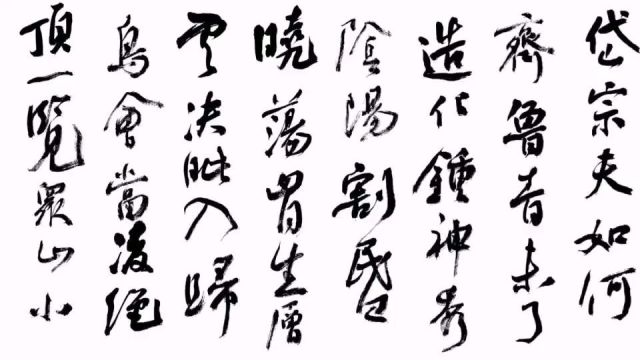 岱宗夫如何
齊魯青未了
造化鍾神秀
陰陽割昏
曉蕩胷生層
雲決眦入歸
鳥會當凌絕
頂一覽眾山小